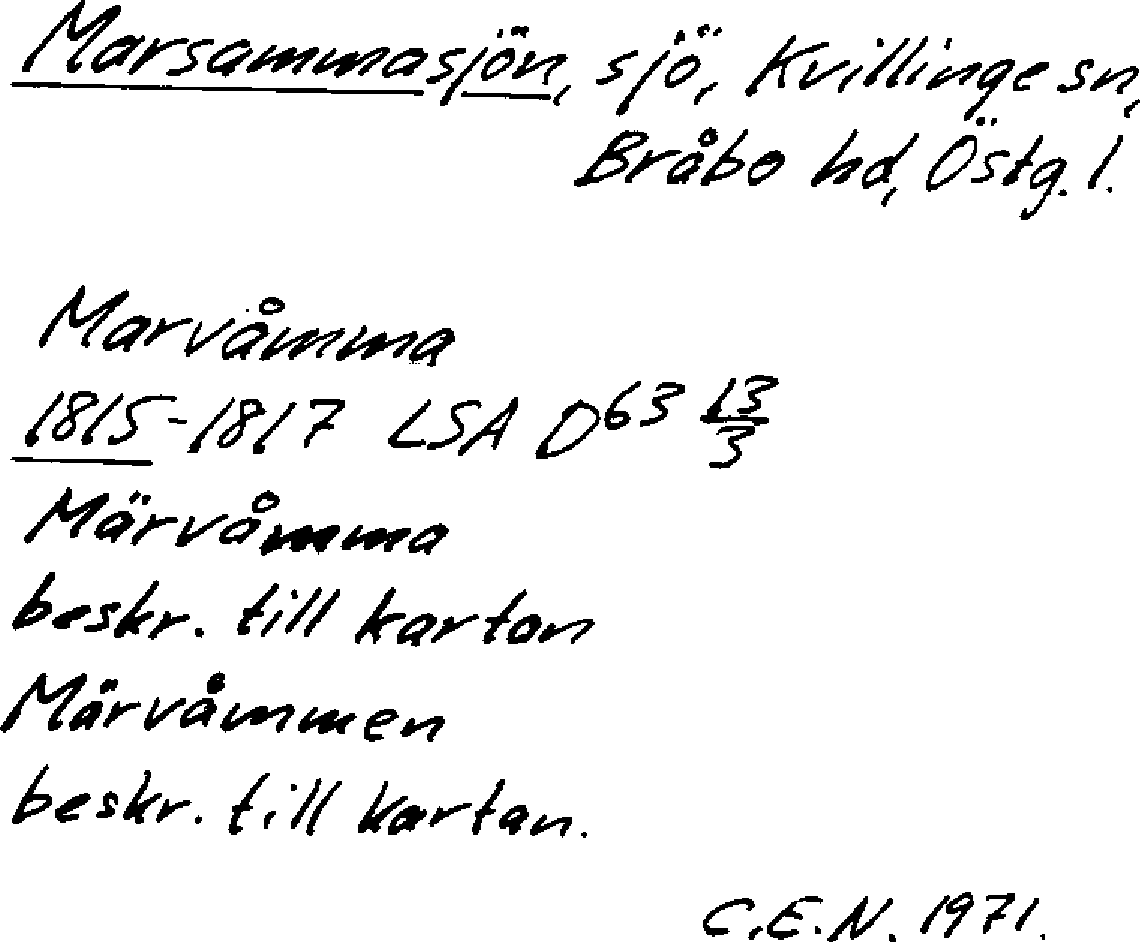 Marsammasjön, sjö, Kvillinge sn,
Bråbo hd, Östg. l.
Marvåmma
1815-1817 LSA D63 13/3
Märvåmma
beskr. till kartan
Märvåmmen
beskr. till kartan.
C.E.N. 1971.